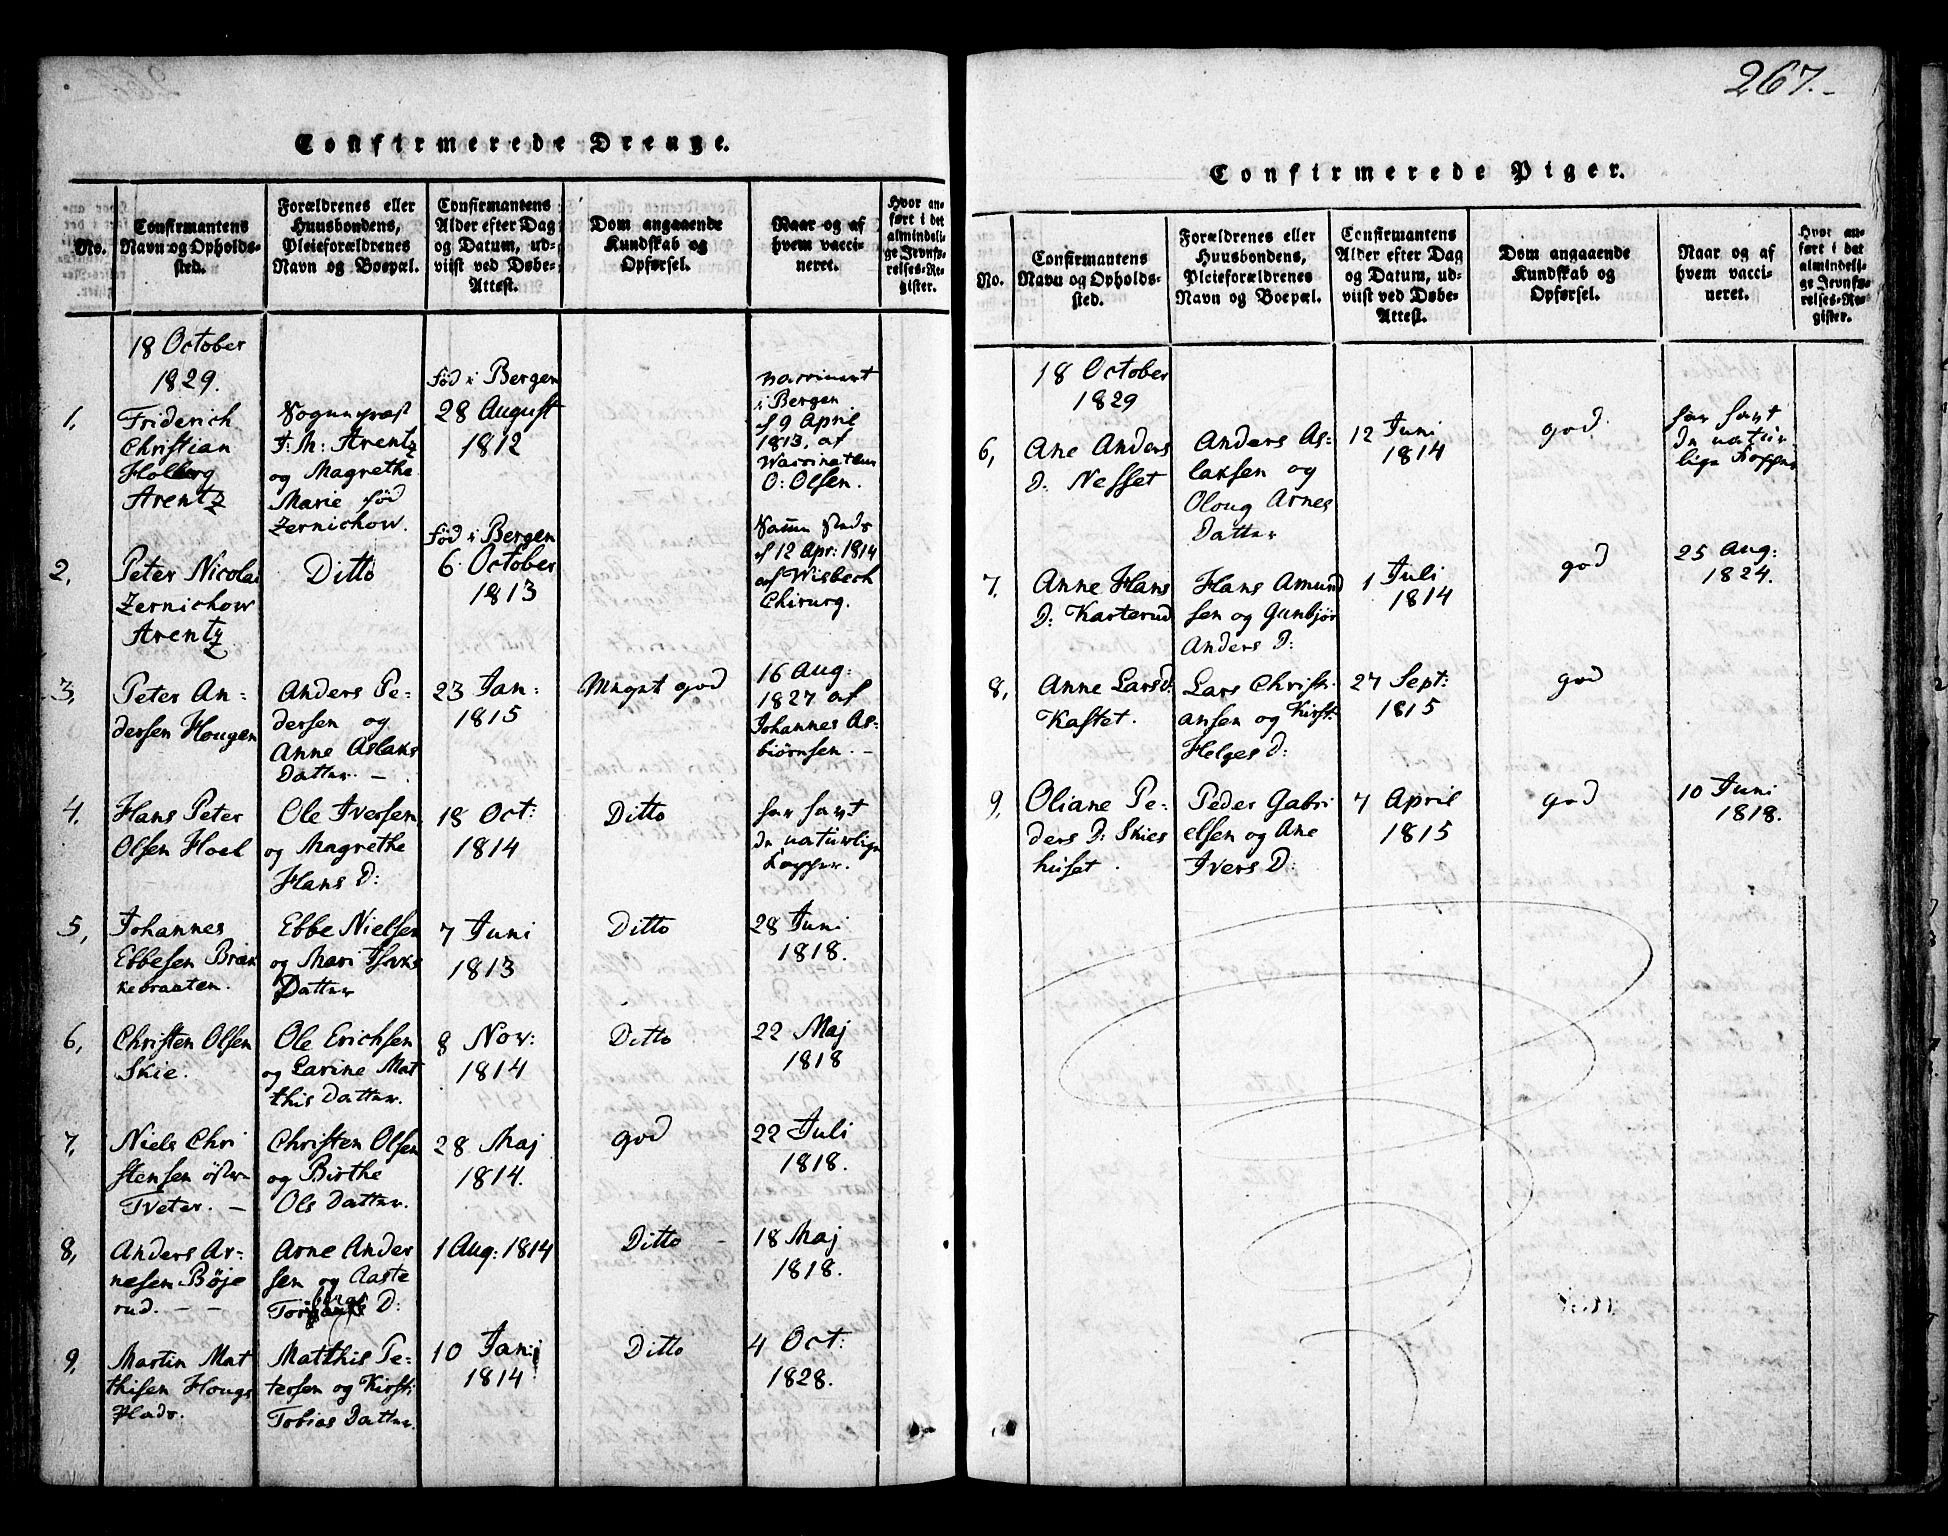 267.
Confirmerede Drenge.
No.
Confirmantens
Navn og Opholds-
sted.
Forældrenes eller
Huusbondens,
Pleieforældrenes
Navn og Boepæl.
Confirmantens
Alder efter Dag
og Datum, ud-
viist ved Døbe-
Attest.
Dom angaaende
Kundskab og
Opførsel.
Naar og af
hvem vacci-
neret.
Hvor an-
ført i det
almindeli-
ge Jevnfø-
relses-Re-
gister.
18 October
1829.
1,
Friderich
Christian
Holberg
Arentz
Sognepræst
F: M: Arentz
og Magrethe
Marie fød
Zernichow.
fød i Bergen
28 August
1812
vaccineret
i Bergen
d 9 April
1813, af
Vaccinateur
O: Olsen.
2,
Peter Nicolai
Zernichow
Arentz
Ditto
fød i Bergen
6 October
1813
Samme steds
d 12 Apr: 1814
af Wisbech
Chirurg.
3,
Peter An-
dersen Hougen
Anders Pe-
dersen og
Anne Aslaks
Datter. -
23 Jan:
1815
Meget god
16 Aug:
1827 af
Johannes As-
biørnsen. -
4.
Hans Peter
Olsen Hoel
Ole Iversen
og Magrethe
Hans D:
18 Oct:
1814
Ditto
har havt
de naturlige
Kopper.
5,
Johannes
Ebbesen Bræk
kebraaten.
Ebbe Nielsen
og Mari Isaks
Datter
7 Juni
1813
Ditto
28 Juni
1818.
6,
Christen Olsen
Skie.
Ole Erichsen
og Larine Mat
this Datter.
8 Nov:
1814
Ditto
22 Maj
1818
7,
Niels Chri
stensen øster
Tveter. -
Christen Olsen
og Birthe
Ols Datter.
28 Maj
1814.
god
22 Juli
1818.
8,
Anders Ar-
nesen Böje
rud. - -
Arne Ander
sen og Aaste
D:
1 Aug: 1814
Ditto
18 Maj
1818.
9,
Martin Mat
thisen Hougs
Plads.
Matthis Pe-
tersen og Kirsti
Tobias Datter.
10 Jan:
1814
Ditto
4 Oct:
1828.
Confirmerede Piger.
No.
Confirmantens
Navn og Opholds-
sted.
Forældrenes eller
Huusbondens,
Pleieforældrenes
Navn og Boepæl.
Confirmantens
Alder efter Dag
og Datum, ud-
viist ved Døbe-
Attest.
Dom angaaende
Kundskab og
Opførsel.
Naar og af
hvem vacci-
neret.
Hvor an-
ført i det
almindeli-
ge Jevnfø-
relses-Re-
gister.
18 October
1829
6,
Ane Anders
D: Nesset
Anders As-
laksen og
Oloug Arnes
Datter
12 Juni
1814
god
har havt
de natur-
lige Kopper
7.
Anne Hans
D: Karterud
Hans Amund
sen og Gunbjør
Anders D:
1 Juli
1814
god
25 Aug:
1824.
8,
Anne Lars D:
Kastet.
Lars Christi-
ansen og Kirst.
Helges D:
27 Sept:
1815
god
9,
Oliane Pe-
ders D: Skies
huset.
Peder Gabri
elsen og Ane
Ivers D:
7 April
1815
god
10 Juni
1818.